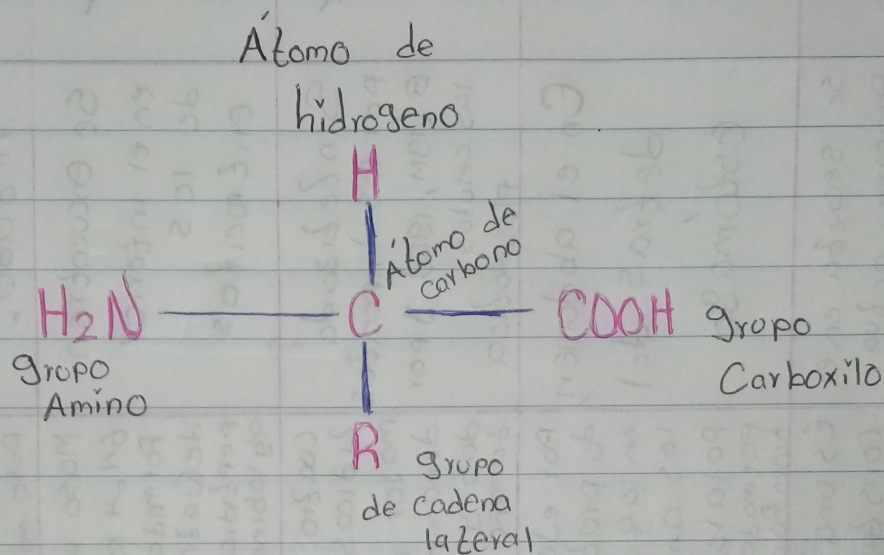 Átomo de
hidrogeno
H
Átomo de
carbono
H₂N — C — COOH
gropo
Amino
gropo
Carboxilo
R
grupo
de cadena
lateral